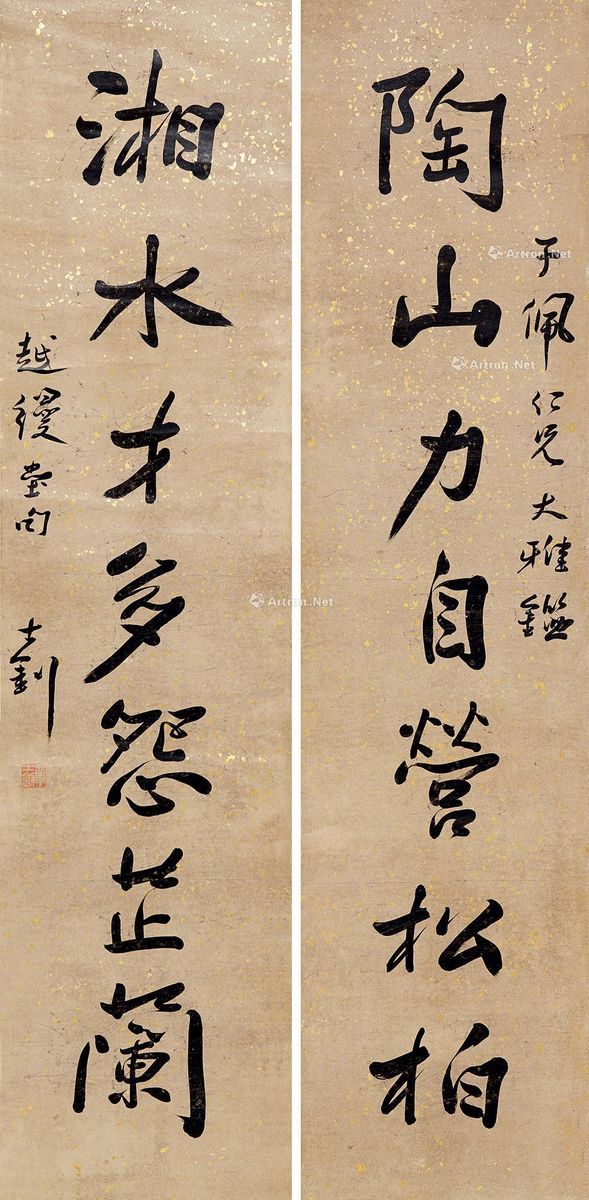 陶山力自營松柏
于佩仁兄大雅鑑
湘水才多怨芷蘭
越縵堂句
士釗
Artron.Net
Artron.Net
Artron.Net